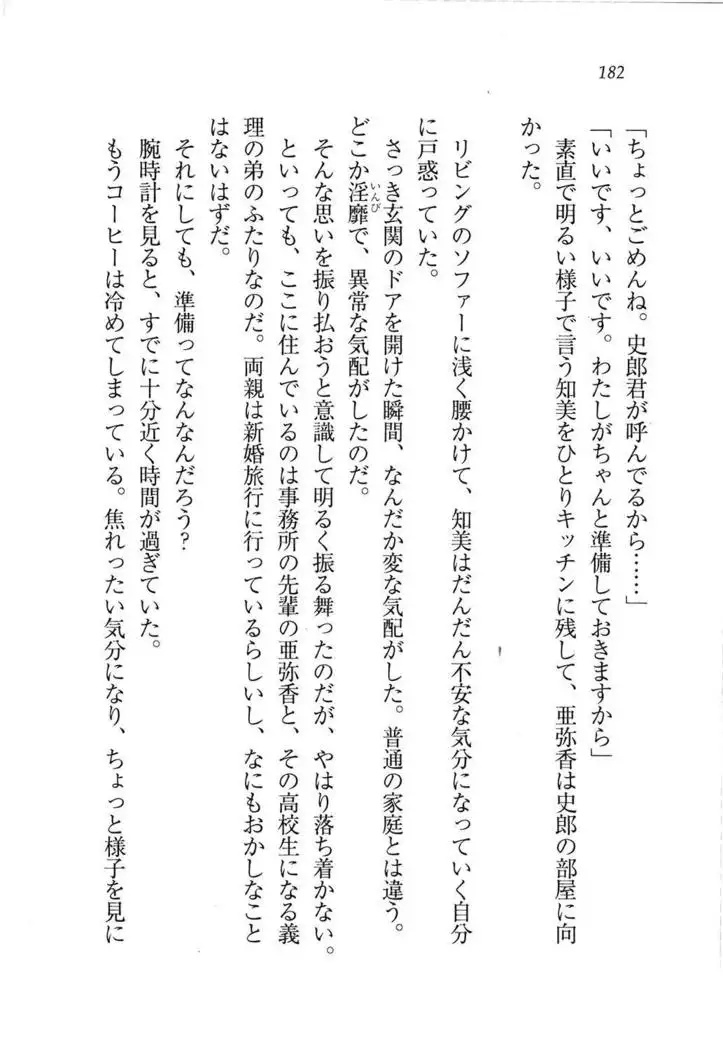 182
「ちょっとごめんね。史郎君が呼んでるから……」
「いいです、いいです。わたしがちゃんと準備しておきますから」
素直で明るい様子で言う知美をひとりキッチンに残して、亜弥香は史郎の部屋に向
かった。
リビングのソファーに浅く腰かけて、知美はだんだん不安な気分になっていく自分
に戸惑っていた。
さっき玄関のドアを開けた瞬間、なんだか変な気配がした。普通の家庭とは違う。
どこか淫靡いんびで、異常な気配がしたのだ。
そんな思いを振り払おうと意識して明るく振る舞ったのだが、やはり落ち着かない。
といっても、ここに住んでいるのは事務所の先輩の亜弥香と、その高校生になる義
理の弟のふたりなのだ。両親は新婚旅行に行っているらしいし、なにもおかしなこと
はないはずだ。
それにしても、準備ってなんなんだろう?
腕時計を見ると、すでに十分近く時間が過ぎていた。
もうコーヒーは冷めてしまっている。焦れったい気分になり、ちょっと様子を見に